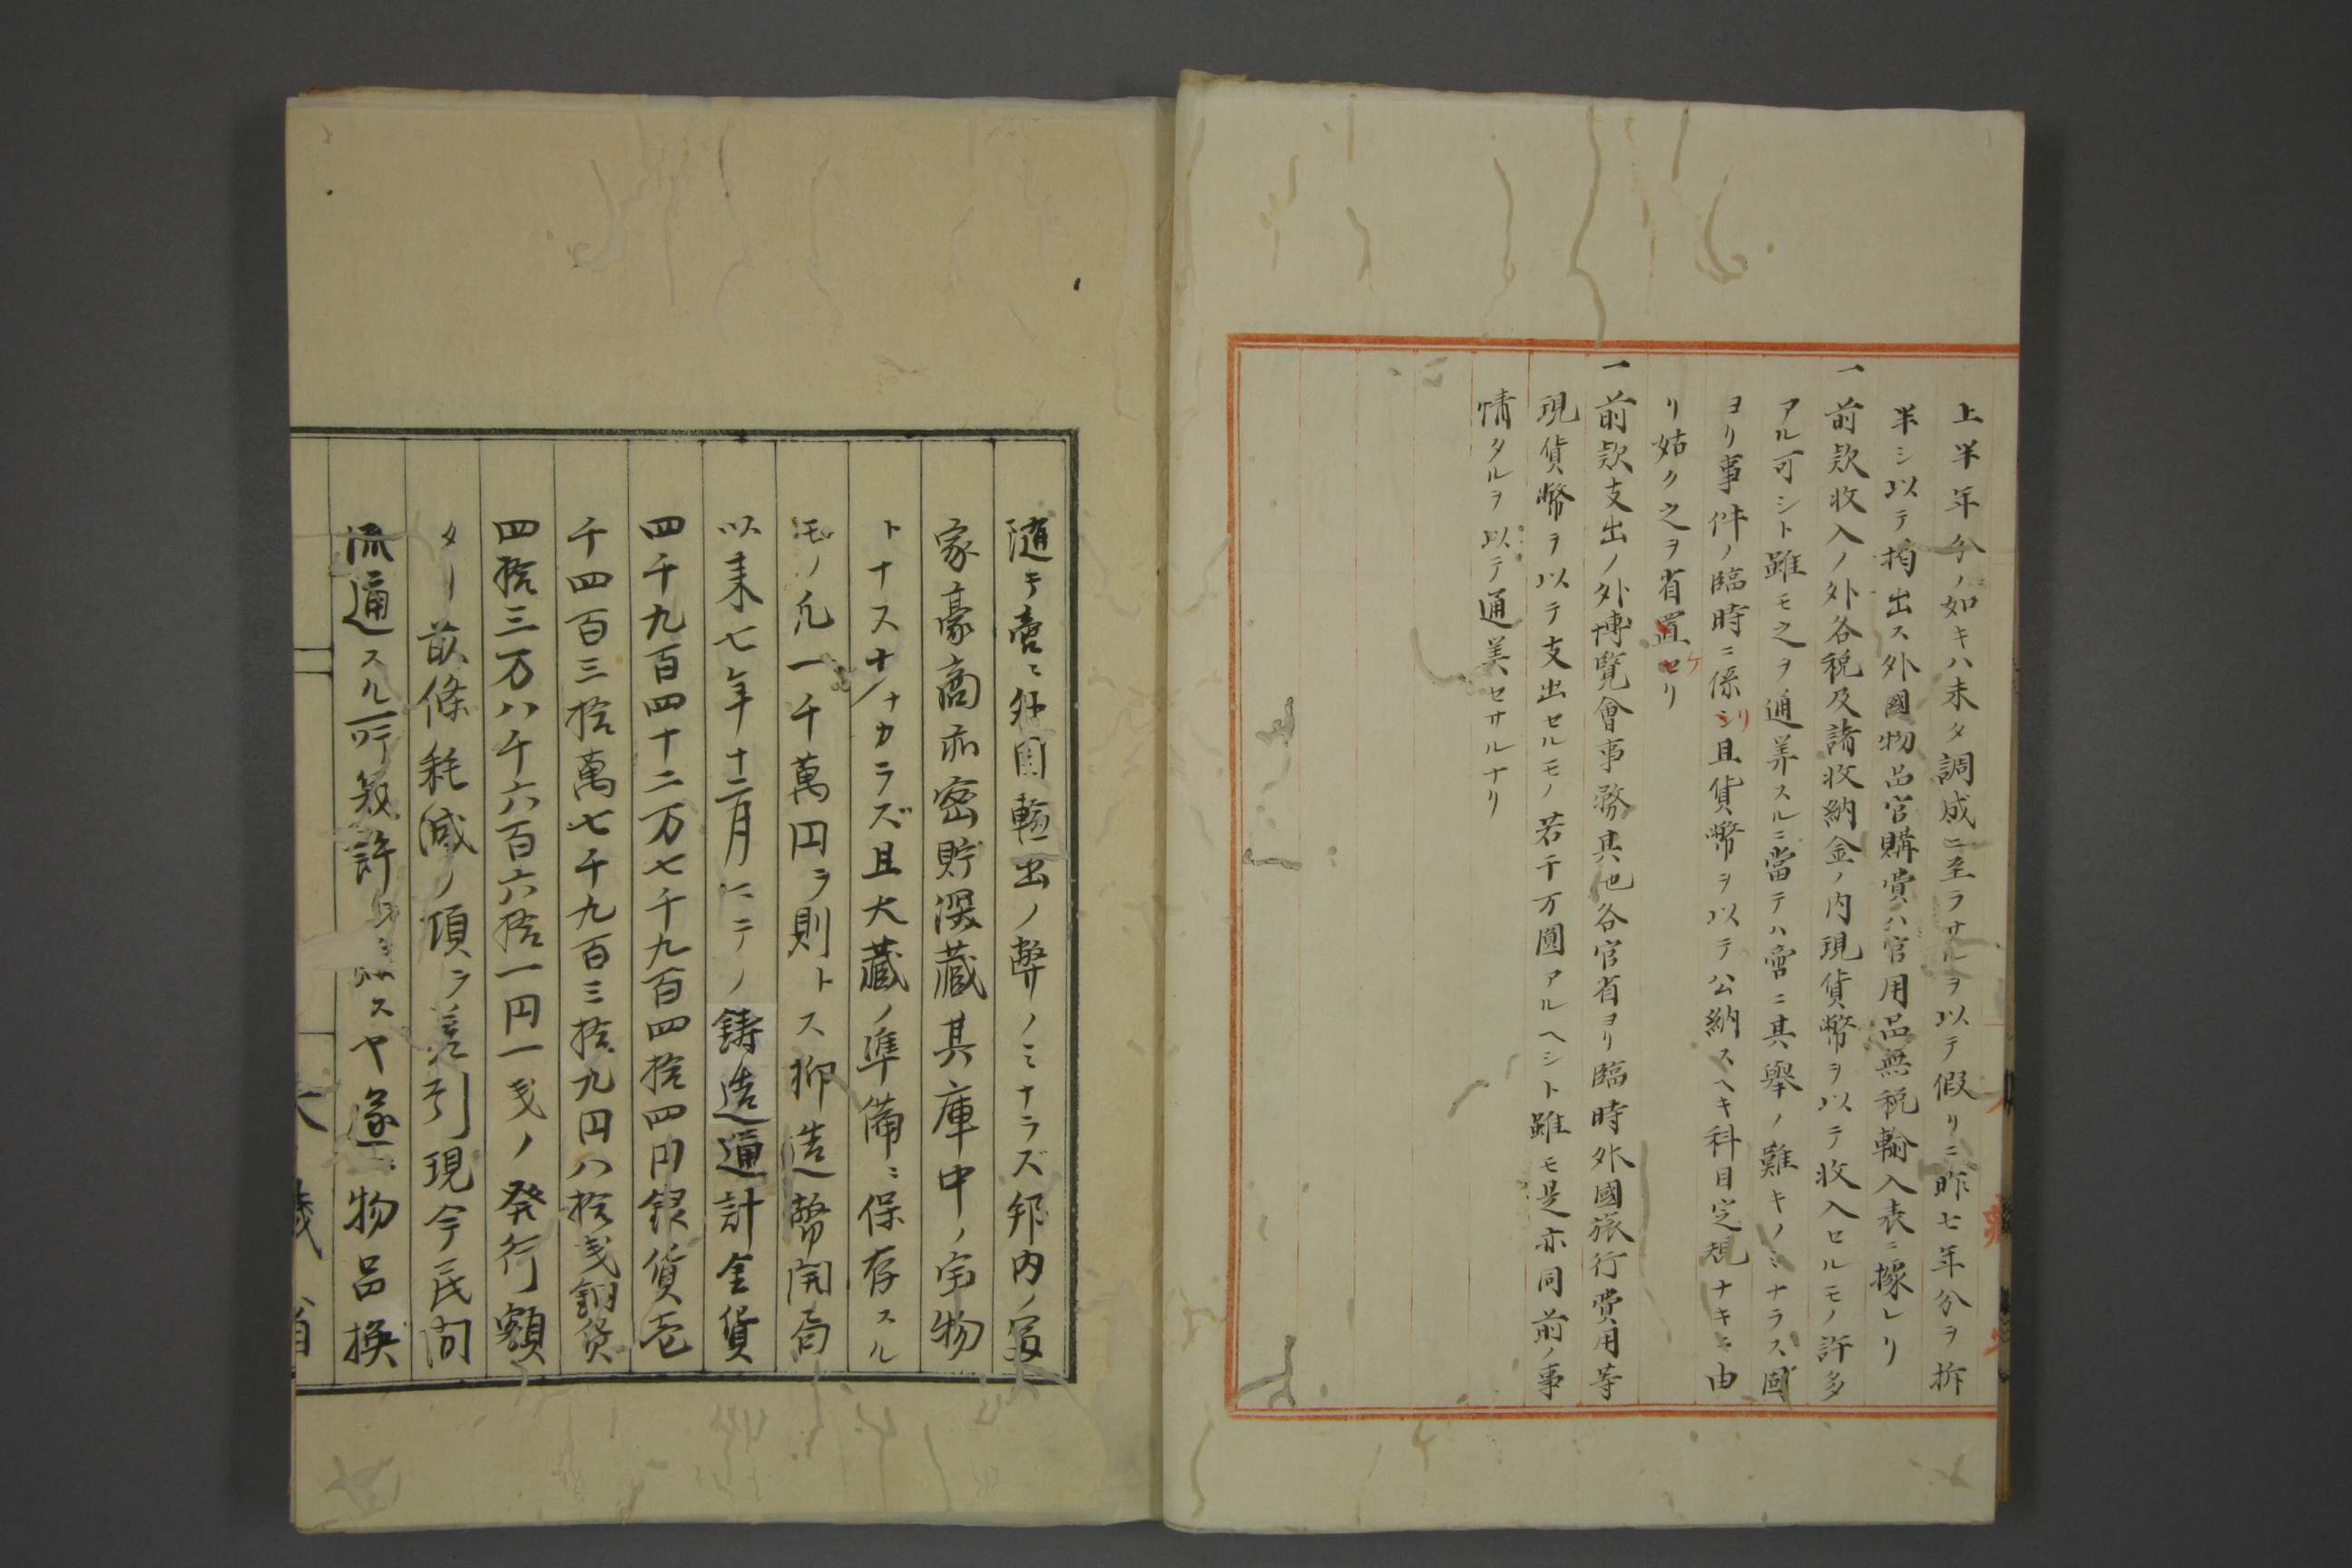 上半年分ノ如キハ未タ調成ニ至ラサルヲ以テ假リニ昨七年分ヲ拆
半シ以テ拍出ス外國物品官購賞ハ官用品無税輸入表ニ據レリ
一前款收入ノ外各税及諸收納金ノ内現貨幣ヲ以テ收入セルモノ許多
アル可シト雖モ之ヲ通筭スルニ當テハ啻ニ其擧ノ難キノミナラス固
ヨリ事件ノ臨時ニ係シリ且貨幣ヲ以テ公納スヘキ科目定規ナキニ由
リ姑ク之ヲ省置セケリ
一前款支出ノ外博覧會事務其他各官省ヨリ臨時外國旅行費用等
現貨幣ヲ以テ支出セルモノ若干万圓アルヘシト雖モ是亦同前ノ事
情タルヲ以テ通美セサルナリ
随テ啻ニ外国輸出ノ弊ノミナラズ邦内ノ富
家豪商亦密貯深蔵其庫中ノ宝物
トナスナナカラズ且大蔵ノ準備ニ保存スル
モノ凡一千萬円ヲ則トス抑造幣開局
以来七年十二月ニテノ鋳造通計金貨
四千九百四十二万七千九百四拾四円銀貨壱
千四百三拾萬七千九百三拾九円八拾戔銅貨
四拾三万八千六百六拾一円一戔ノ発行額
タリ前條耗減ノ項ヲ差引現今民間
流通スル所幾許スヤ遂ニ物品換
大蔵省